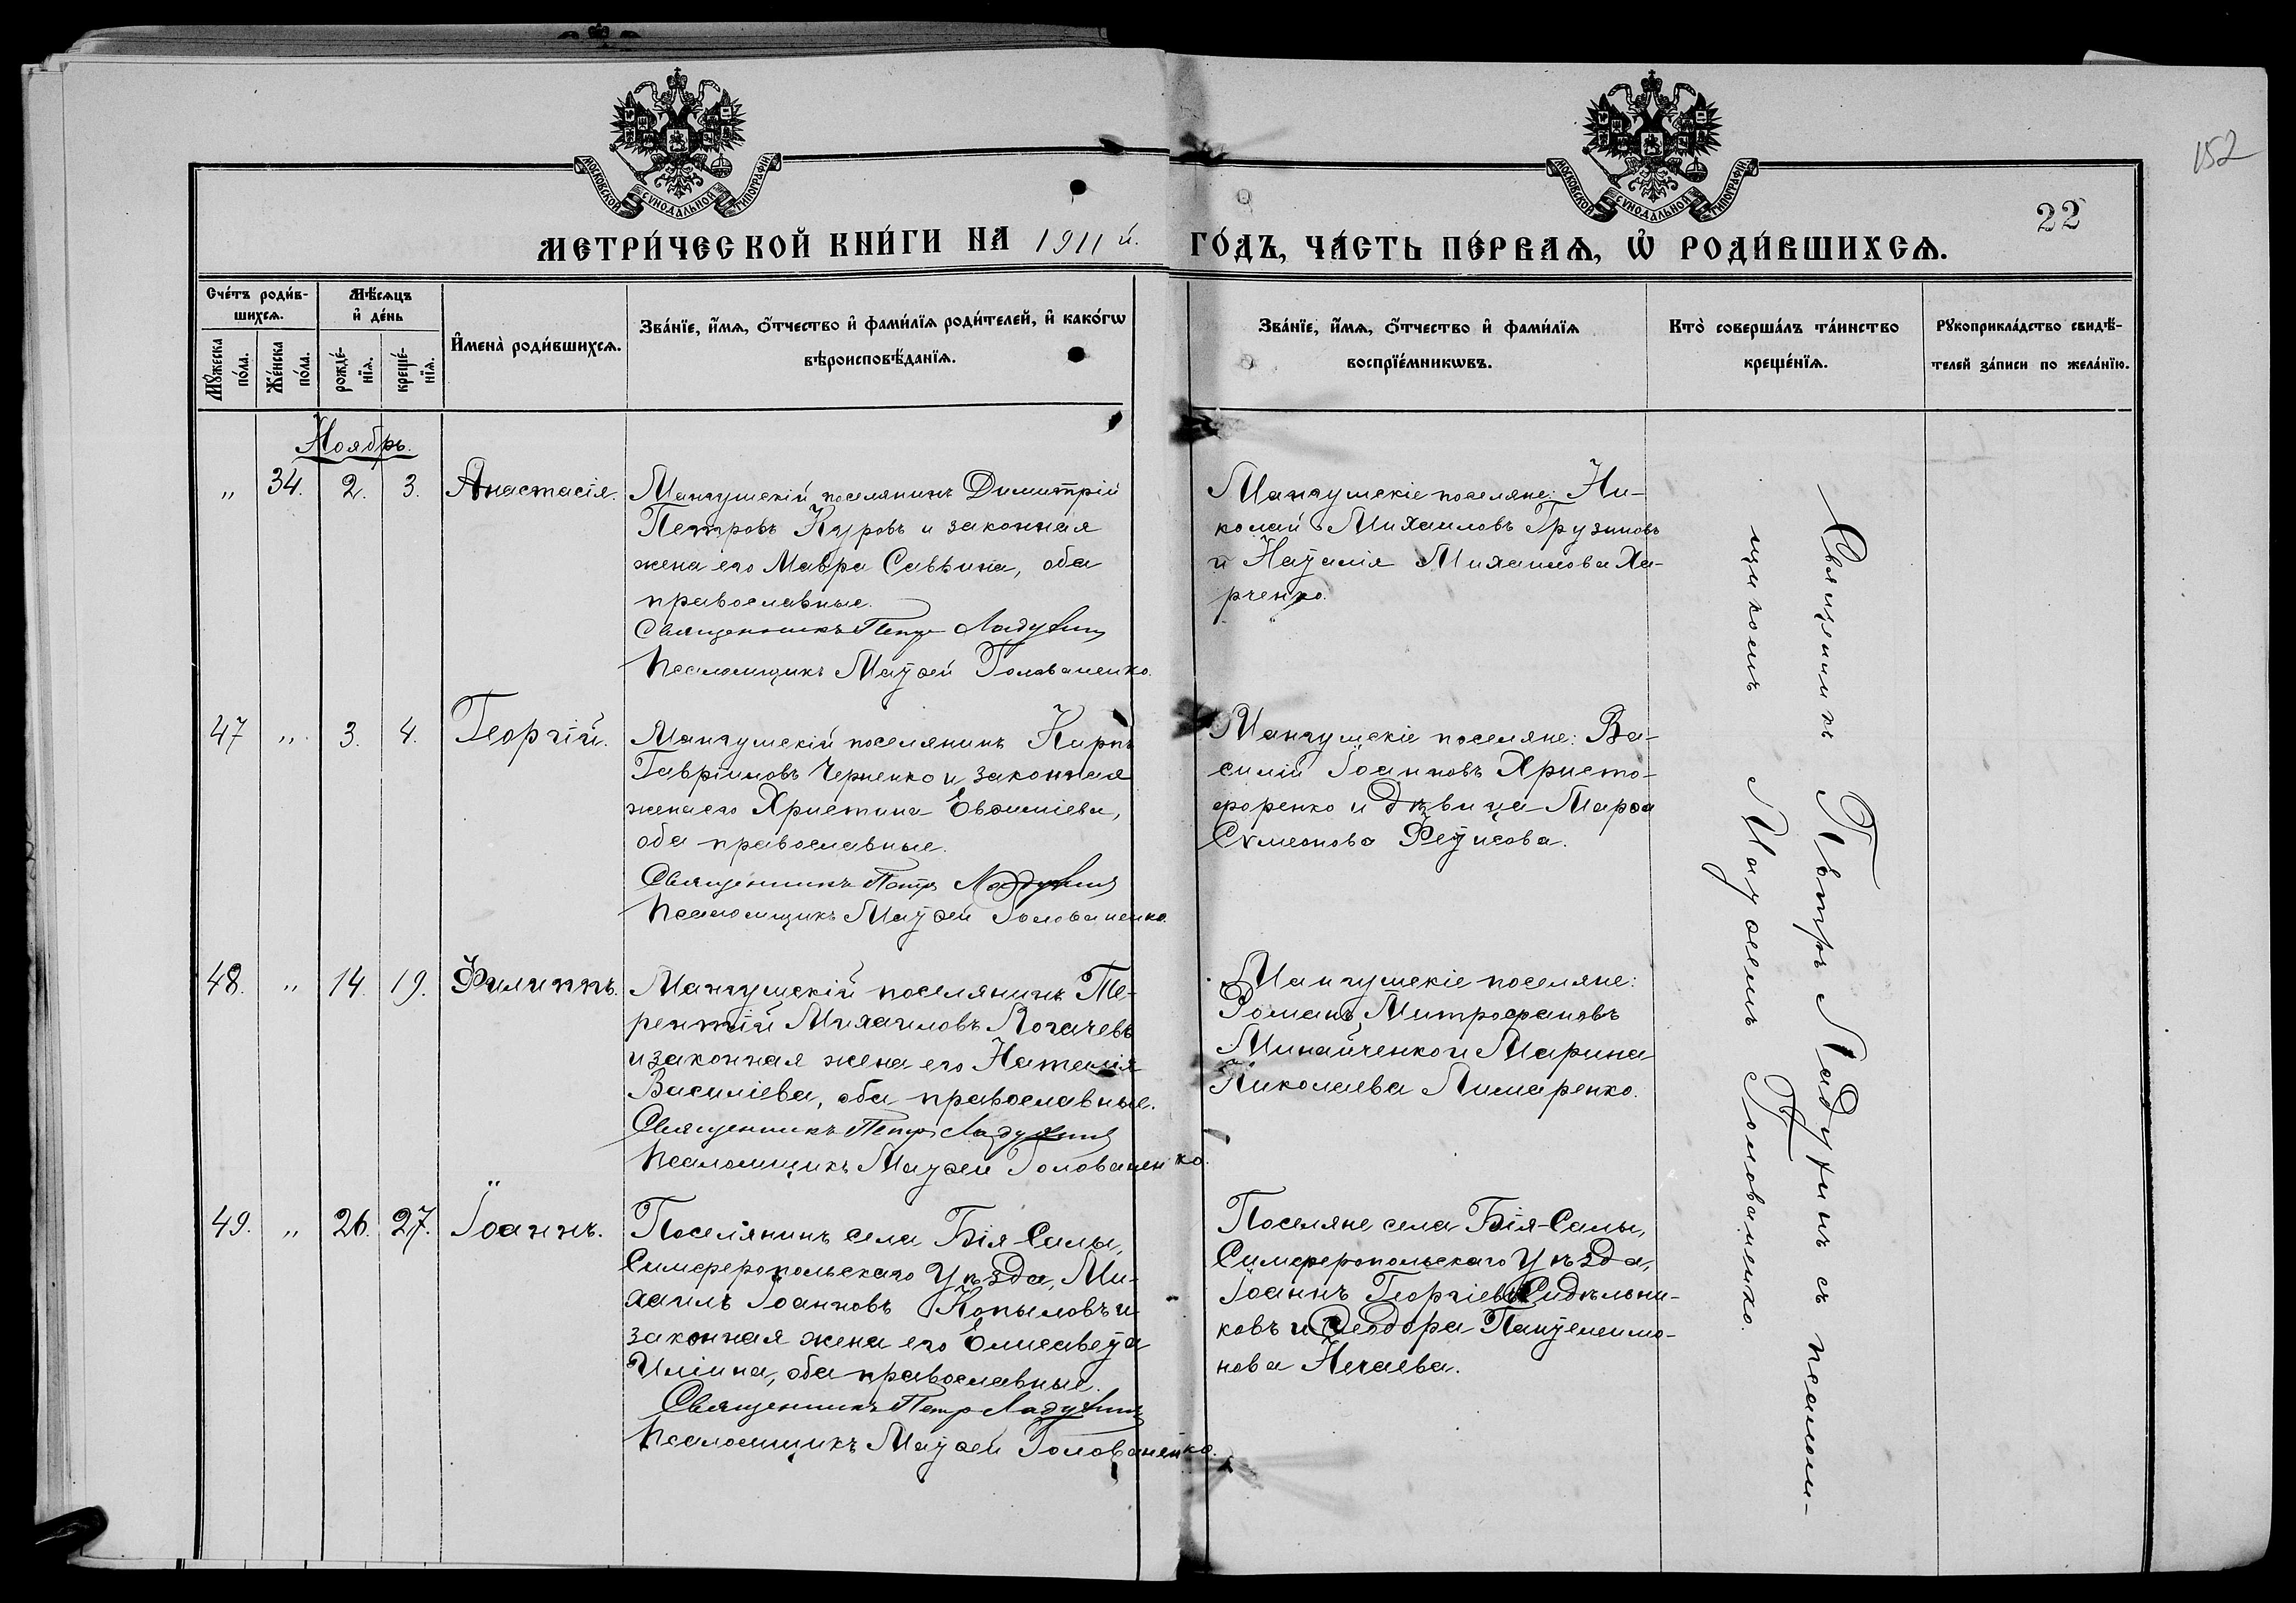 МОСКОВСКОЙ СѴНОДАЛЬНОЙ ТИПОГРАФІИ
МОСКОВСКОЙ СѴНОДАЛЬНОЙ ТИПОГРАФІИ
152
22
МЕТРИ́ЧЕСКОЙ КНИ́ГИ НА 1911 й. ГО́ДЪ, ЧА́СТЬ ПЕ́РВАѦ, Ѡ҆ РОДИ́ВШИХСѦ.
Сче́тъ роди́в-
шихсѧ.
Мꙋ́жеска
по́ла.
Же́нска
по́ла.
Мѣ́сѧцъ
и҆ де́нь
рожде́-
нїѧ.
креще́-
нїѧ.
И҆мена̀ роди́вшихсѧ.
Зва́нїе, и҆́мѧ, ѻ҆́тчество и҆ фами́лїѧ роди́телей, и҆ како́гѡ
вѣроисповѣ́данїѧ.
Зва́нїе, и҆́мѧ, ѻ҆́тчество и҆ фами́лїѧ
воспрїе́мникѡвъ.
Кто̀ соверша́лъ та́инство
креще́нїѧ.
Рꙋкоприкла́дство свидѣ́-
телей за́писи по жела́нїю.
Ноябрь.
„ 34. 2. 3. Анастасія.
Мангушскій поселянинъ Димитрій
Петровъ Куровъ и законная
жена его Мавра Саввина, оба
православные.
Священникъ Петръ Ладухинъ
Псаломщикъ Матѳей Голованенко.
Мангушскіе поселяне: Ни-
колай Михаиловъ Грузиновъ
и Наталія Михаилова Ха-
рченко.
47 „ 3. 4. Георгій.
Мангушскій поселянинъ Карпъ
Гавріиловъ Черненко и законная
жена его Христина Евѳиміева,
оба православные.
Священникъ Петръ Ладухинъ
Псаломщикъ Матѳей Голованенко.
Мангушскіе поселяне: Ва-
силій Іоанновъ Христо-
форенко и дѣвица Марѳа
Сѵмеонова Фетисова.
48. „ 14. 19. Филиппъ.
Мангушскій поселянинъ Те-
рентій Михаиловъ Логачевъ
и законная жена его Наталія
Василіева, оба православные.
Священникъ Петръ Ладухинъ
Псаломщикъ Матѳей Голованенко.
Мангушскіе поселяне:
Романъ Митрофановъ
Минайченко и Марина
Николаева Лимаренко.
49. „ 26. 27. Іоаннъ.
Поселянинъ села Бія-Салы,
Симферопольскаго уѣзда, Ми-
хаилъ Іоанновъ Копыловъ и
законная жена его Елисавета
Иліина, оба православные.
Священникъ Петръ Ладухинъ
Псаломщикъ Матѳей Голованенко.
Поселяне села Бія-Салы,
Симферопольскаго уѣзда,
Іоаннъ Георгіевъ Сидѣльни-
ковъ и Ѳеодора Пантелеимо-
нова Нечаева.
Священникъ Петръ Ладухинъ съ псалом-
щикомъ Матѳеемъ Голованенко.